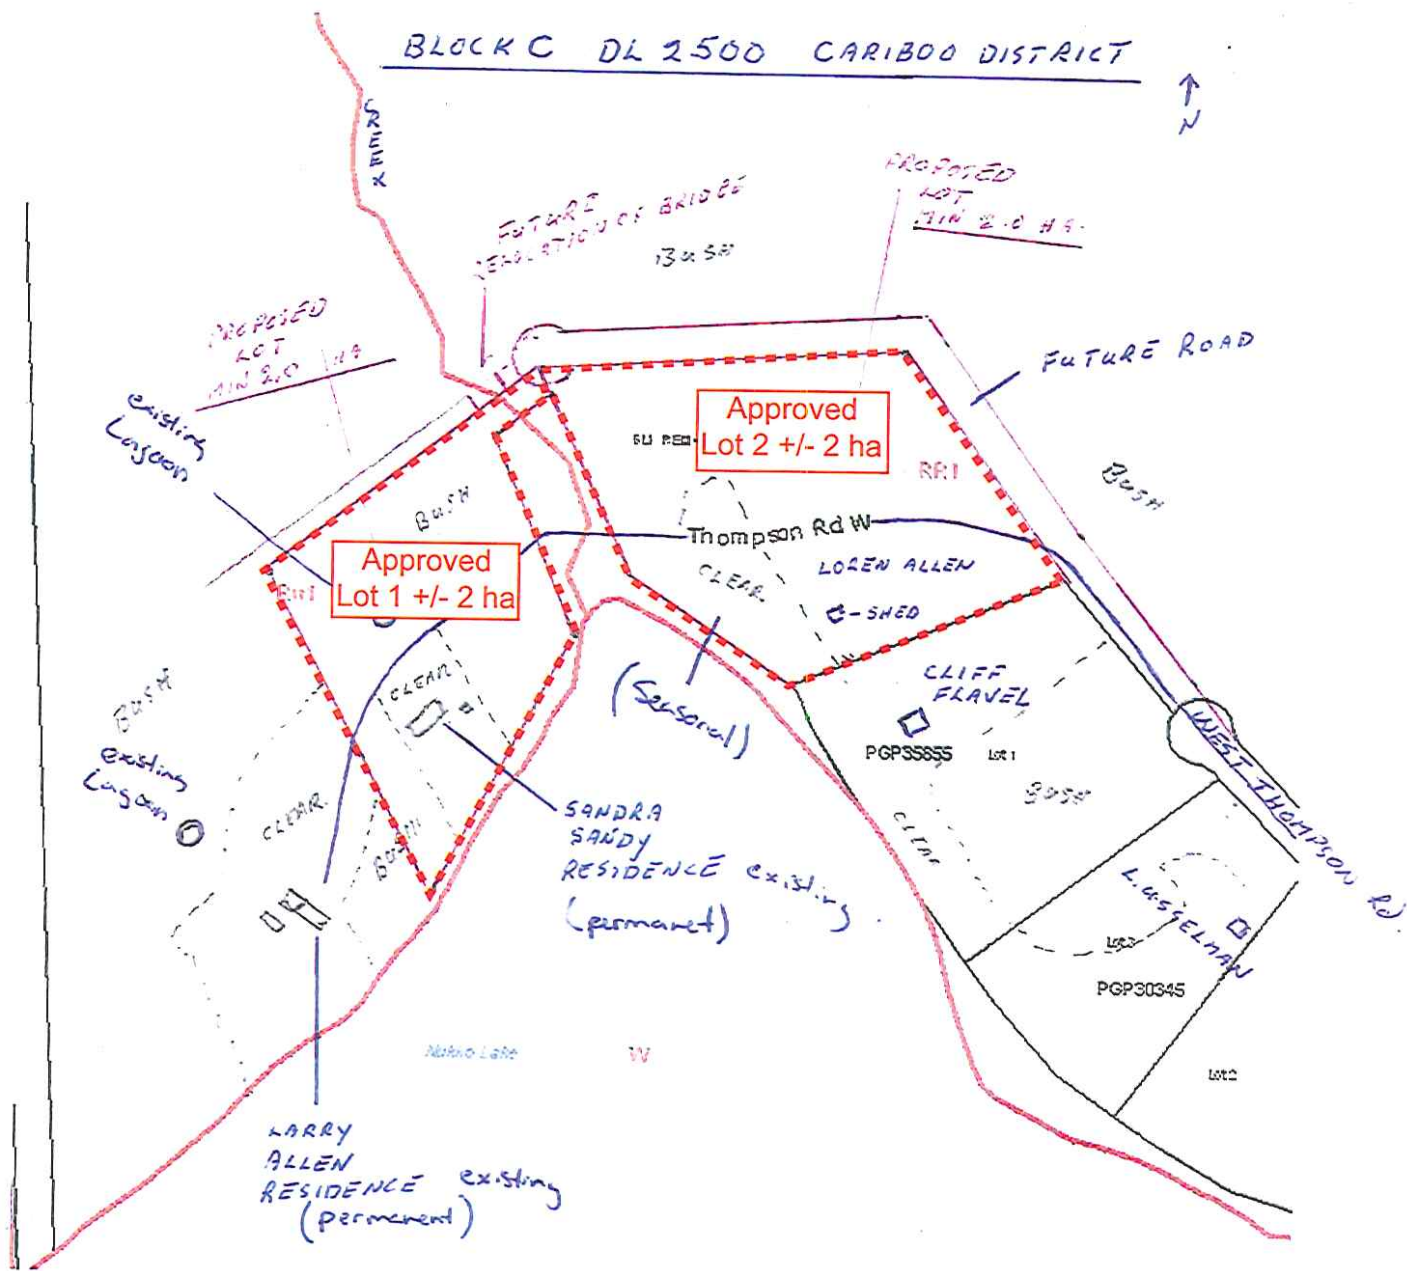 BLOCK C DL 2500 CARIBOO DISTRICT
N
CREEK
PROPOSED
LOT
MIN 2.0 HA.
FUTURE
BUSH
PROPOSED
LOT
MIN 2.0 HA
FUTURE ROAD
existing
Lagoon
Approved
Lot 2 +/- 2 ha
RR1
BUSH
BUSH
Thompson Rd W
Approved
Lot 1 +/- 2 ha
RR1
CLEAR
LOREN ALLEN
SHED
CLEAR
BUSH
(Seasonal)
CLIFF
FLAVEL
PGP35855
Lot 1
WEST THOMPSON Rd
existing
Lagoon
CLEAR
BUSH
SANDRA
SANDY
RESIDENCE existing
(permanet)
BUSH
CLEAR
Lot3
PGP30345
Lot2
Nukko Lake
W
LARRY
ALLEN
RESIDENCE existing
(permanent)